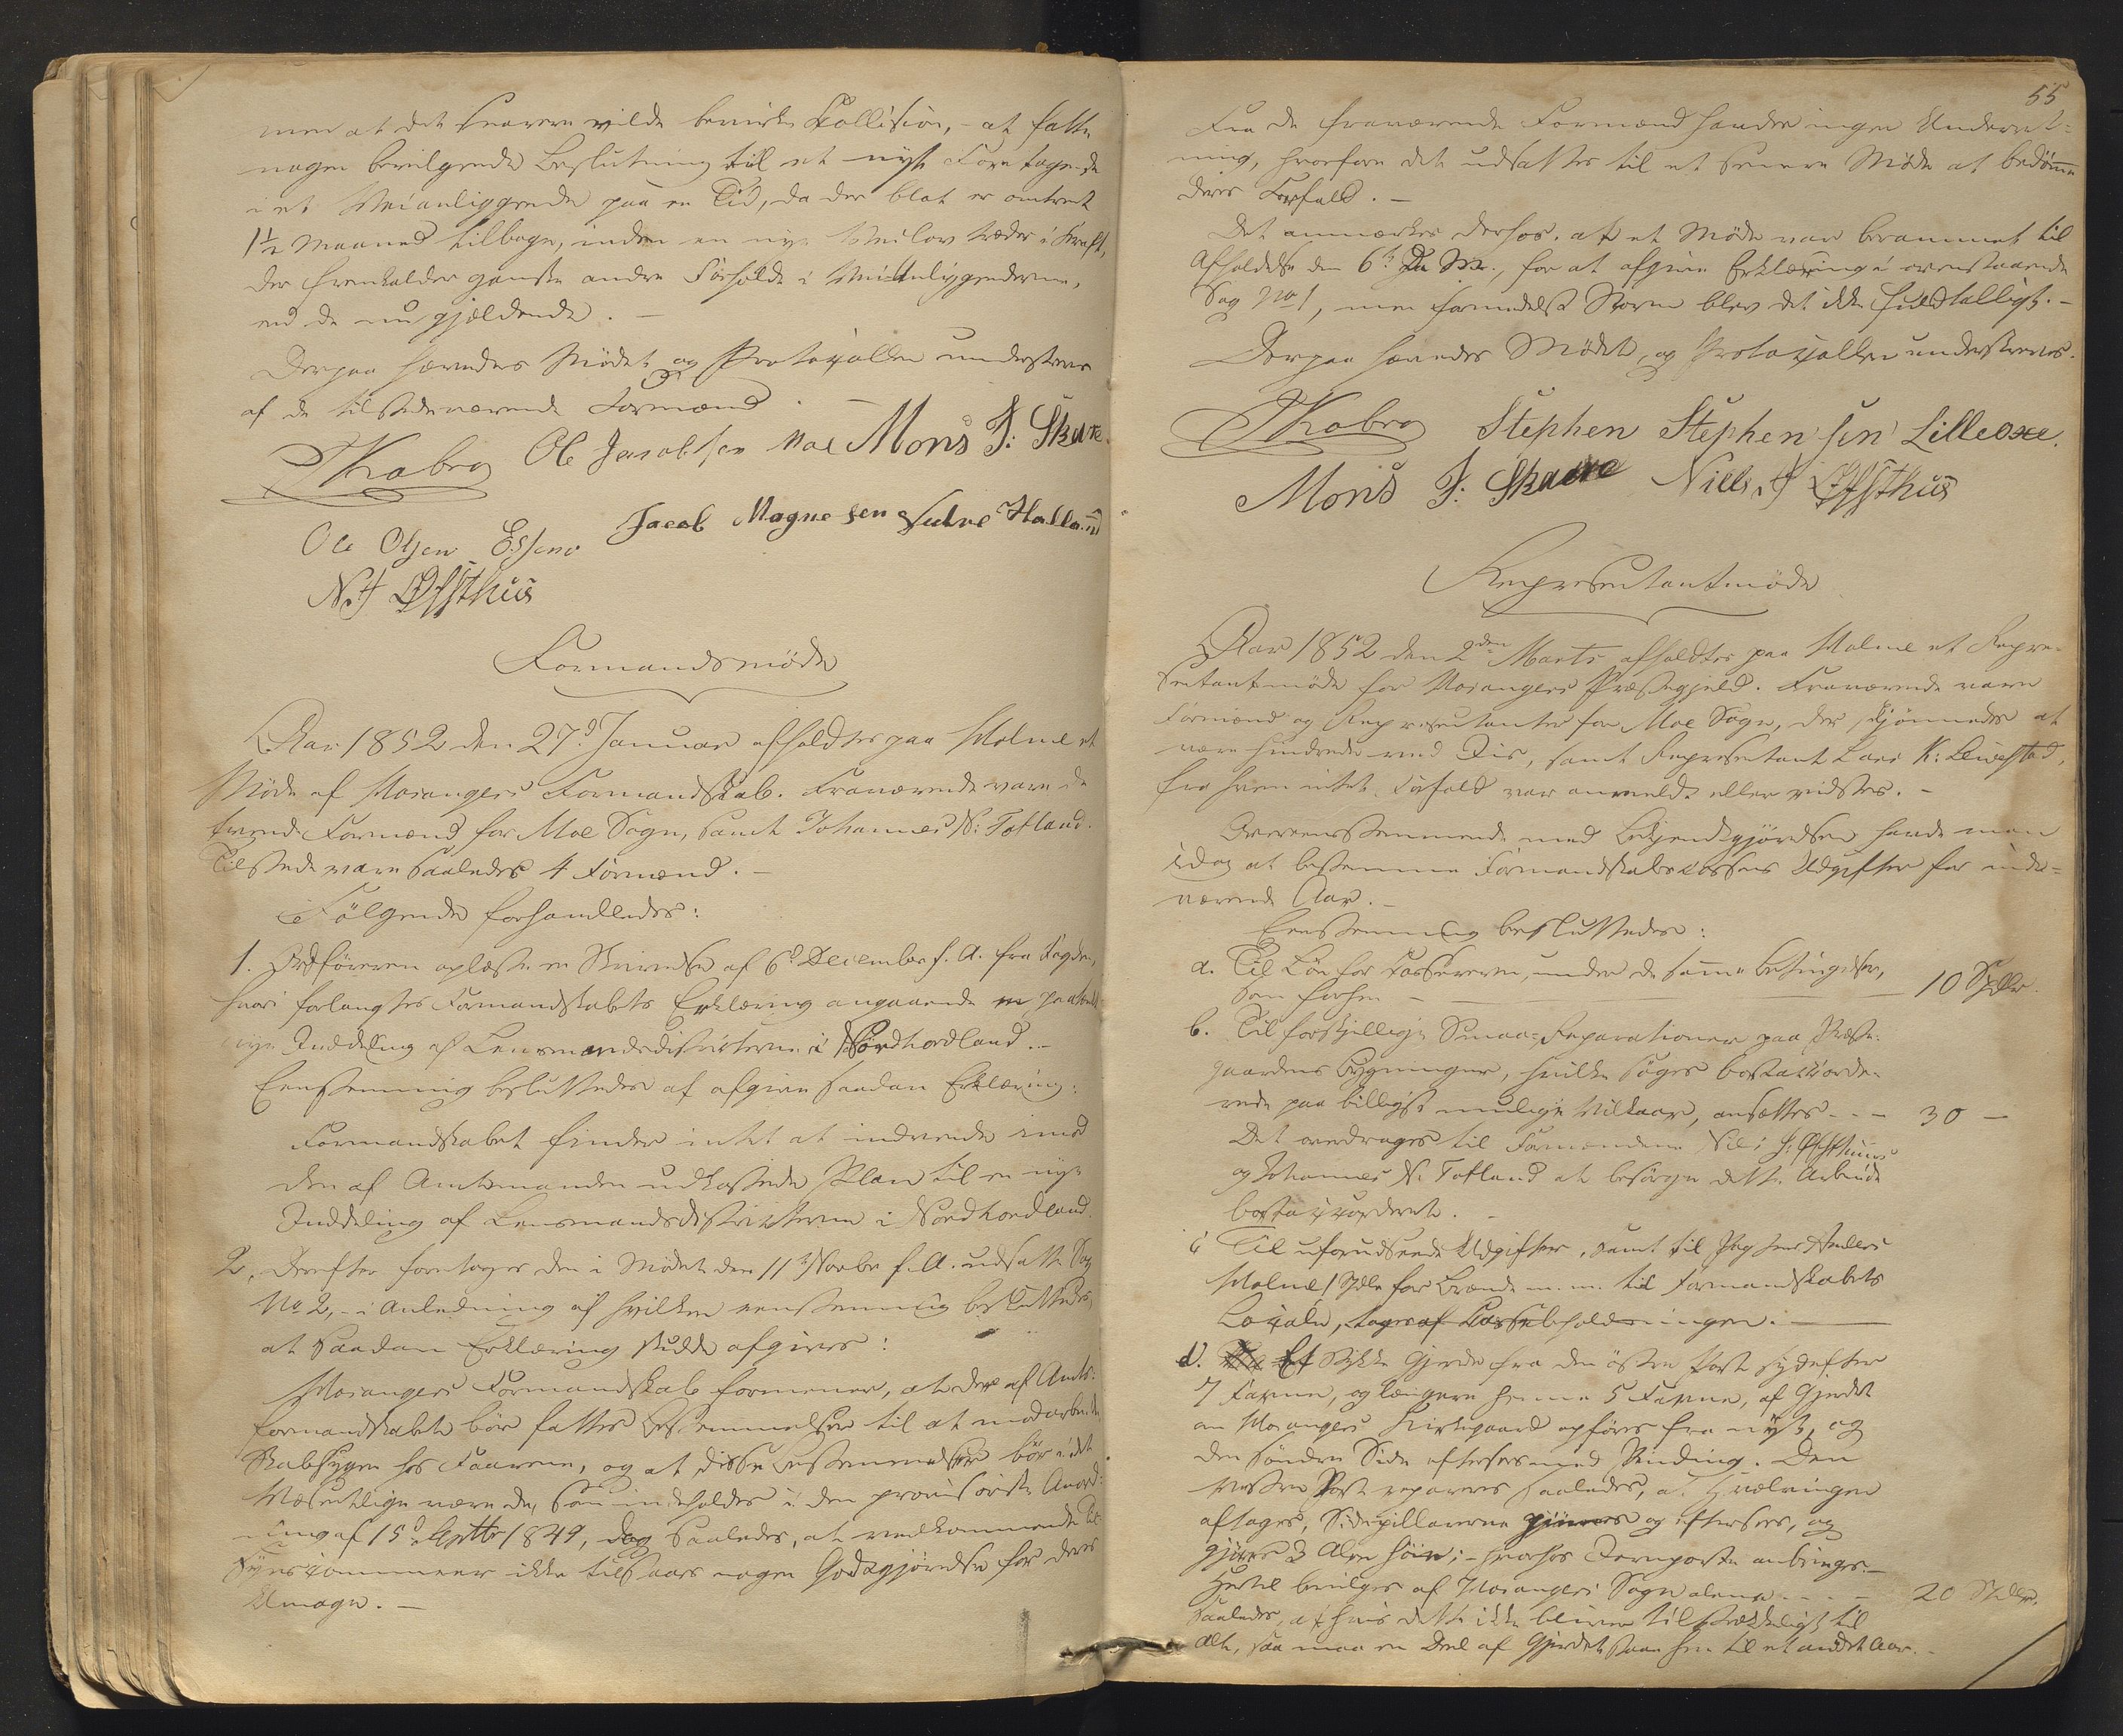 men at det snarere vilde bevirke Collision, - at fatte
nogen bevilgende Beslutning til et nyt Foretagende
i et Veianliggende paa en Tid, da der blot er omtrent
1½ Maaned tilbage, inden en nye Veilov træder i Kraft,
der fremkalder ganske andre Forholde i Veianliggenderne,
end de nu gjældende. -
Derpaa hævedes Mødet og Protocollen underskreves
af de tilstedeværende Formænd. -
Kobro Ole Jacobsen Moe Mons J: Skare.
Ole Olsen Io Jacob Magnesen Halland
N. J Øfsthus
Formandsmøde
Aar 1852 den 27d Januar afholdtes paa Holme et
Møde af Hosangers Formandskab. Fraværende vare de
trende Formænd for Moe Sogn, samt Johannes N: Tofland.
Tilstede vare saaledes 4 Formænd. -
Følgende forhandledes:
1. Ordføreren oplæste en Skrivelse af 6d December f. A. fra Fogden,
hvori forlangtes Formandskabets Erklæring angaaende en paatænkt
nye Inddeling af Lensmandsdistricterne i Nordhordland. -
Eenstemmig besluttedes at afgive saadan Erklæring:
Formandskabet finder intet at indvende imod
den af Amtmanden udkastede Plan til en nye
Inddeling af Lensmandsdistricterne i Nordhordland.
2. Derefter foretoges den i Mødet den 11t Novbr f. A. udsatte Sag
No 2, - i Anledning af hvilken eenstemmig besluttedes,
at saadan Erklæring skulde afgives:
Hosangers Formandskab formener, at der af Amts-
formandskabet bør fattes Bestemmelser til at modarbeide
Skabsygen hos Faarene, og at disse Bestemmelser bør i det
Væsentlige være de, som indeholdes i den provisoriske Anord-
ning af 15d Septbr 1849, dog saaledes, at vedkommende Til-
synscommeer ikke tilstaaes nogen Godtgjørelse for deres
Umage. -
55
Fra de fraværende Formænd havdes ingen Underret-
ning, hvorfore det udsattes til et senere Møde at bedømme
deres Forfald. -
Det anmærkes derhos, at et Møde var berammet til
Afholdelse den 6t ds. M., for at afgive Erklæring i ovenstaaende
Sag No 1, men formedelst Storm blev det ikke fuldtalligt. -
Derpaa hævedes Mødet, og Protocollen underskreves.
Kobro Stephen Stephensen Lilleoxe.
Mons J: Skare Niels J Øfsthus
Repræsentantmøde
Aar 1852 den 2den Marts afholdtes paa Holme et Repræ-
sentantmøde for Hosangers Præstegjeld. Fraværende vare
Formænd og Repræsentanter for Moe Sogn, der skjønnedes at
være hindrede ved Iis, samt Repræsentant Lars K:
fra hvem intet Forfald var anmeldt eller vidstes. -
Overeensstemmende med Bekjendtgjørelsen havde man
idag at bestemme Formandskabscassens Udgifter for inde-
værende Aar. -
Eenstemmig besluttedes:
a. Til Løn for Kassereren, under de samme Betingelser,
som forhen - - 10 Spdlr.
b. Til forskjellige Smaa-Reparationer paa Præste-
gaardens Bygninger, hvilke søges bortaccorde-
rede paa billigst mulige Vilkaar, ansættes - - - 30 -
Det overdrages til Formændene Nils J: Øfsthus
og Johannes N. Tofland at besørge dette Arbeide
bortaccorderet. -
c Til uforudseede Udgifter, samt til Anders
Holme 1 Spdlr for Brænde m. m. til Formandskabets
Locale, tages af Kassebeholdningen. -
d. Et Stykke Gjerde fra den østre Port sydefter
7 Favne, og længere henne 5 Favne, af Gjerdet
om Hosangers Kirkegaard opføres fra nyt, og
den søndre Side eftersees med Pinding. Den
vestre Port repareres saaledes, at Hvælvingen
aftages, Sidepillarerne og eftersees, og
gjøres 3 Alen høie; - hvorhos Jernporte anbringes. -
Hertil bevilges af Hosangers Sogn alene - - - 20 Spdlr.
saaledes, at hvis dette ikke bliver tilstrækkeligt til
Alt, saa maa en Deel af Gjerdet staae hen til et andet Aar. -